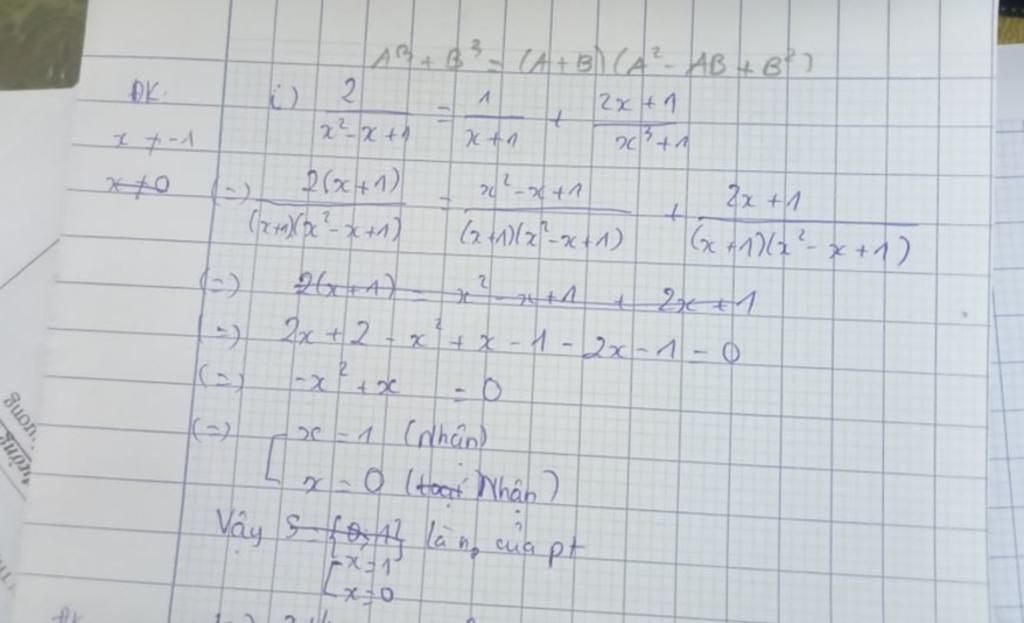 A³ + B³ = (A + B) (A² - AB + B²)
ĐK: i) 2/(x² - x + 1) = 1/(x + 1) + (2x + 1)/(x³ + 1)
x ≠ -1
x ≠ 0 (=) 2(x + 1)/((x+1)(x² - x + 1)) = (x² - x + 1)/((x+1)(x² - x + 1)) + (2x + 1)/((x + 1)(x² - x + 1))
(=) 2(x + 1) = x² - x + 1 + 2x + 1
(=) 2x + 2 - x² + x - 1 - 2x - 1 = 0
(=) -x² + x = 0
(=) [ x = 1 (Nhận)
x = 0 (loại Nhận)
Vậy S = {0; 1} là n₀ của pt
[ x = 1
x = 0